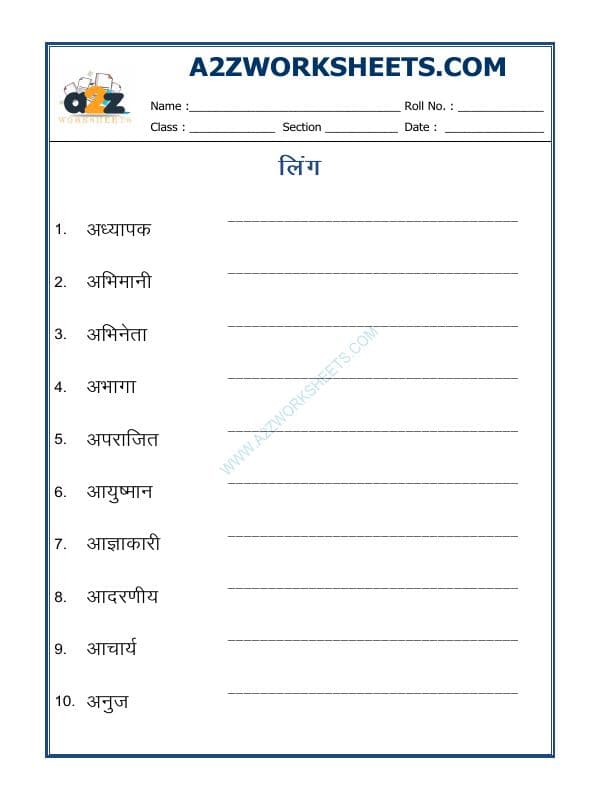 A2ZWORKSHEETS.COM
a2z
WORKSHEETS
Name :______________________________ Roll No. : ____________
Class : ____________ Section __________ Date : ______________
लिंग
1. अध्यापक ______________________________
2. अभिमानी ______________________________
3. अभिनेता ______________________________
4. अभागा ______________________________
5. अपराजित ______________________________
6. आयुष्मान ______________________________
7. आज्ञाकारी ______________________________
8. आदरणीय ______________________________
9. आचार्य ______________________________
10. अनुज ______________________________
WWW.A2ZWORKSHEETS.COM